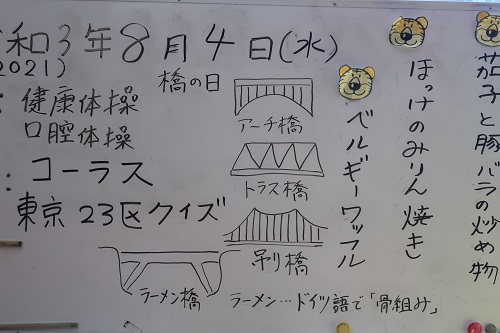 和3年8月4日(水)
2021)
橋の日
健康体操
口腔体操
コーラス
東京23区クイズ
アーチ橋
トラス橋
吊り橋
ラーメン橋
ラーメン…ドイツ語で「骨組み」
茄子と豚バラの炒め物
ほっけのみりん焼き
ベルギーワッフル